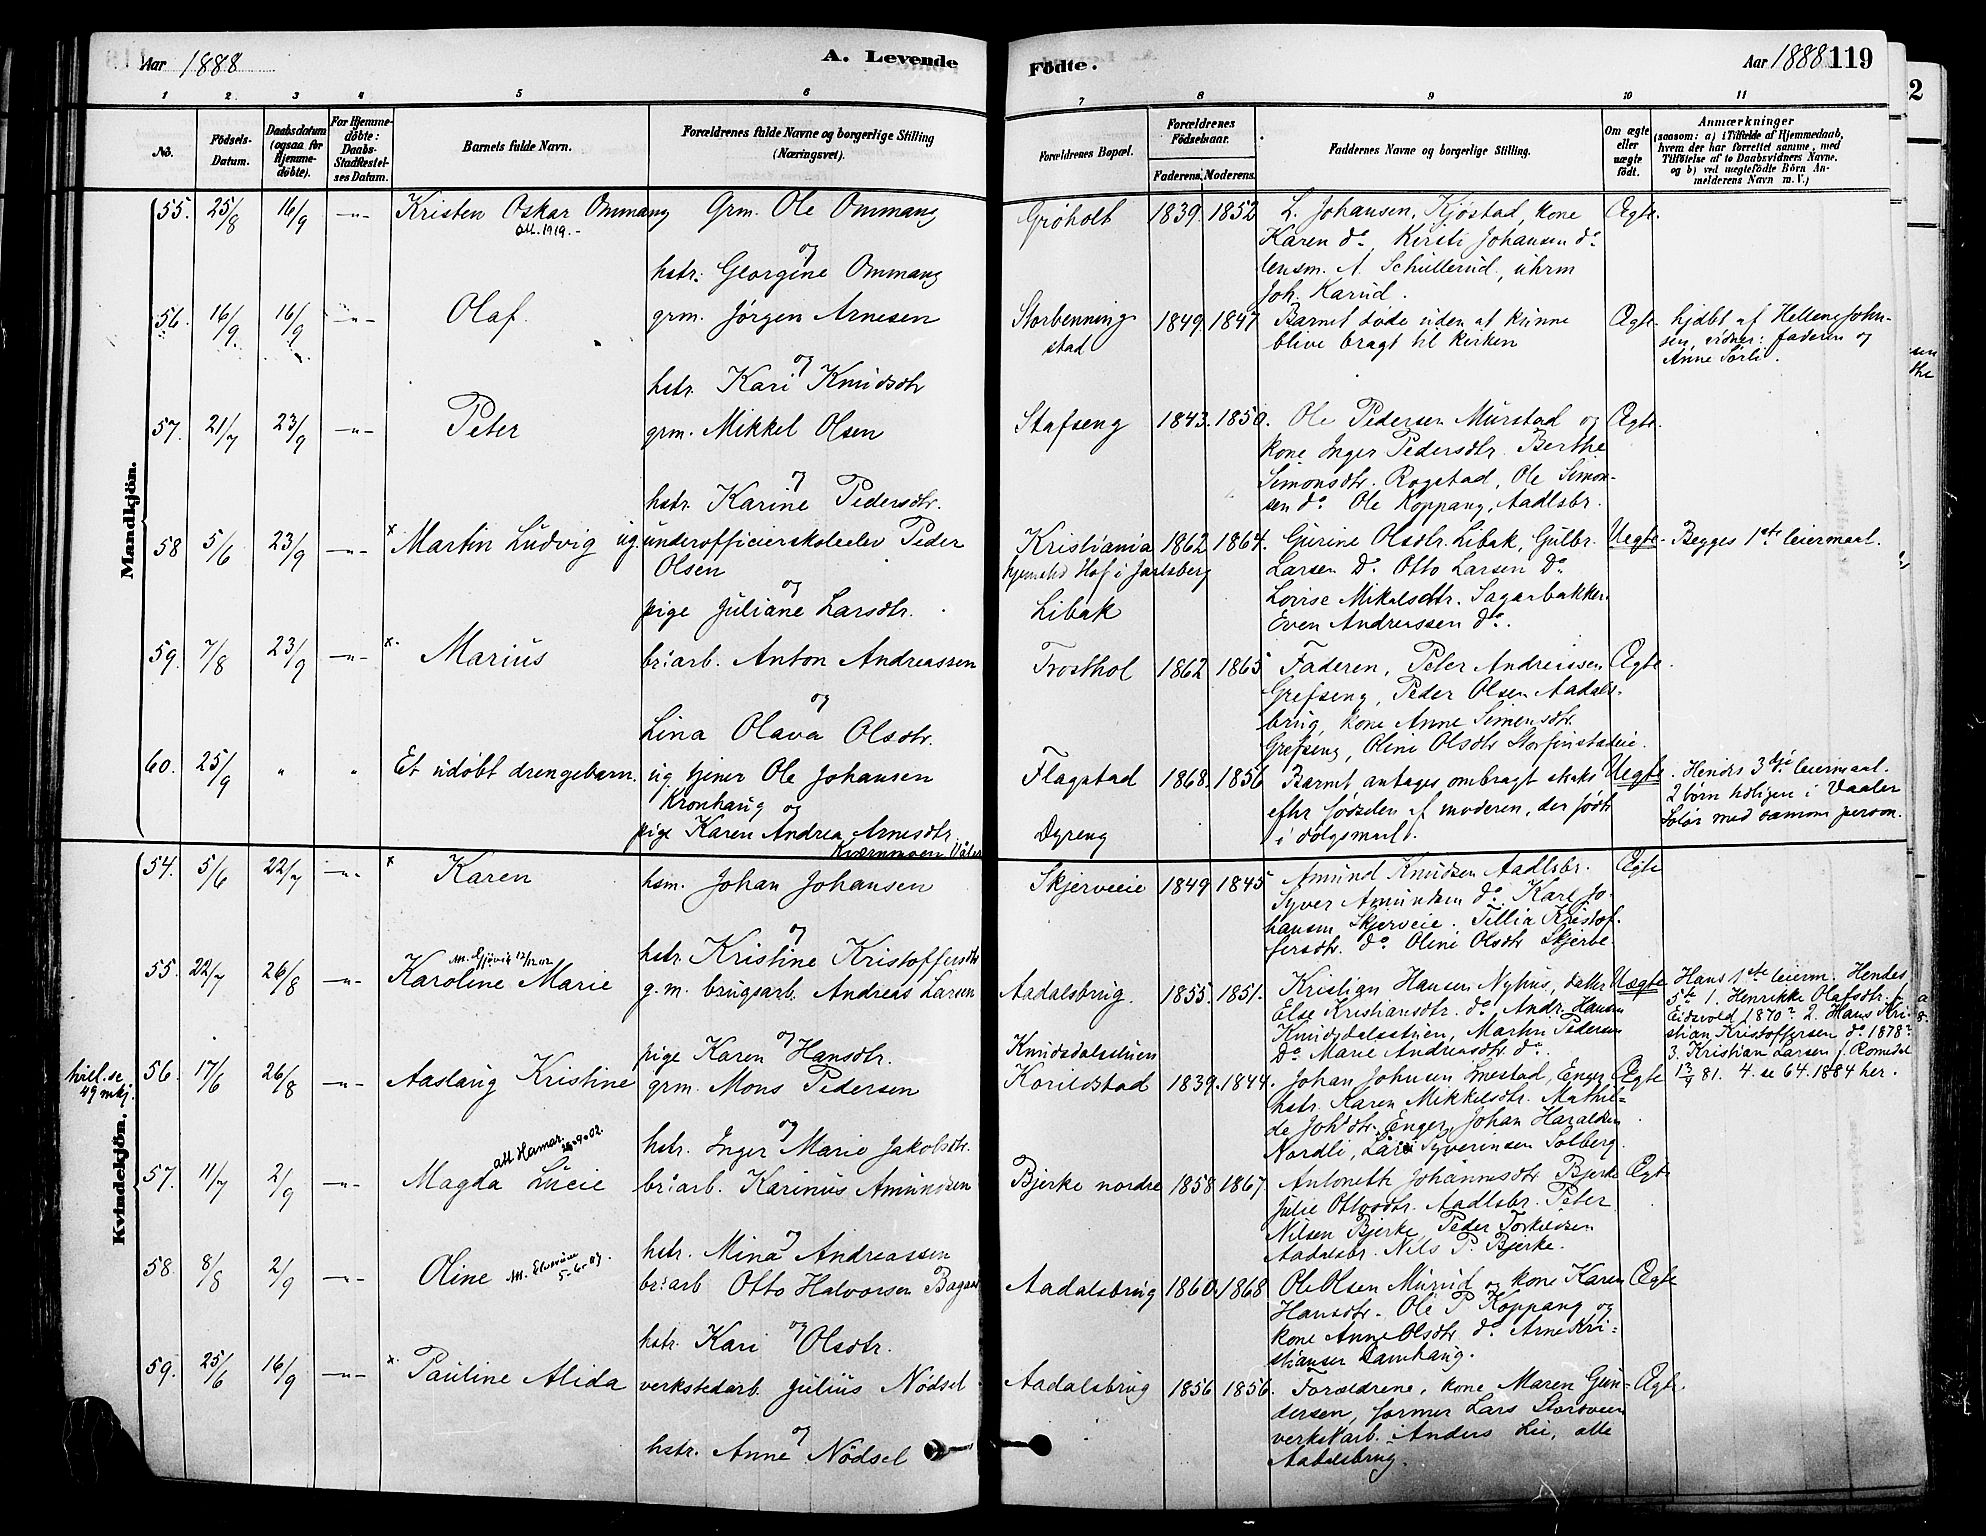 Aar 1888
A. Levende
Fødte.
Aar 1888
119
1 2. 3 4 5 6
7 8 9 10 11
No.
Fødsels-Datum.
Daabsdatum (ogsaa for Hjemmedøbte).
For Hjemmedøbte: Daabs-Stadfæstelses Datum.
Barnets fulde Navn.
Forældrenes fulde Navne og borgerlige Stilling (Næringsvei).
Forældrenes Bopæl.
Forældrenes Fødselsaar.
Faderens. Moderens.
Faddernes Navne og borgerlige Stilling.
Om ægte eller uægte født.
Anmærkninger
(saasom: a) i Tilfælde af Hjemmedaab, hvem der har forrettet samme, med Tilføielse af to Daabsvidners Navne, og b) ved uægtefødte Børn Anmelderens Navn m. V.)
Mandkjön.
55. 25/8 16/9 -"- Kristen Oskar Ommang Grm. Ole Ommang
att. 1919.-
og
hstr. Georgine Ommang
Grøholt 1839. 1852 L. Johansen, Kjøstad, kone Ægte.
Karen do, Kirsti Johansen do
lensm. A. Schullerud, uhrm
Joh. Karud.
56. 16/9 16/9 -"- Olaf. grm. Jørgen Arnesen
og
hstr. Kari Knudsdtr
Storbenningstad 1849. 1847 Barnet døde uden at kunne Ægte.
blive bragt til kirken
hjdbt af Hellene Johnsen, vidner: faderen og
Anne Sørli.
57. 21/7 23/9 -"- Peter grm. Mikkel Olsen
og
hstr. Karine Pedersdtr.
Stafseng 1843. 1850. Ole Pedersen Murstad og Ægte.
kone Inger Pedersdtr. Berthe
Simonsdtr. Rogstad, Ole Simonsen do Ole Koppang, Aadlsbr.
58 5/6 23/9 -"- x Martin Ludvig ug. underofficerskoleelev Peder
Olsen
og
pige Juliane Larsdtr.
Kristiania 1862 1864. Gurine Olsdtr. Libak, Gulbr. Uegte. Begges 1ste leiermaal.
hjemsted Hof i Jarlsberg
Libak
Larsen Do Otto Larsen Do
Lovise Mikalsdtr. Sagarbakken
Even Andreassen do.
59. 7/8 23/9 -"- x. Marius br:arb. Anton Andreassen
og
Lina Olava Olsdtr.
Trosthol 1862 1865 Faderen, Peter Andreassen Ægte.
Grefseng, Peder Olsen Aadalsbrug, kone Anne Simensdtr.
Grefseng, Oline Olsdtr Storfinstadeie.
60. 25/9 " " Et udøbt drengebarn. ug. tjener Ole Johansen
Kronhaug og
pige Karen Andrea Arnesdtr.
Kværnmoen Våler
Flagstad 1868. 1856 Barnet antages ombragt straks Uegte.
Dyreng
efter fødselen af moderen, der fødte
i dølgsmaal.
Hendes 3dje leiermaal.
2 børn tidligere i Vaaler
Solør med samme person.
Kvindekjön.
54. 5/6 22/7 -"- x Karen hsm. Johan Johansen
og
hstr. Kristine Kristoffersdtr
Skjerveie 1849 1845 Amund Knudsen Aadlsbr. Ægte
Syver Amundsen do. Karl Johansen Skjerveie. Tillia Kristoffersdtr. do Oline Olsdtr Skjerbe.
55. 22/7 26/8 -"- Karoline Marie g. m. brugsarb. Andreas Larsen
att. Gjøvik 12/12 02
og
pige Karen Hansdtr.
Aadalsbrug. 1855. 1851. Kristian Hansen Nyhus, datter Uægte
Knudsdalsstuen
Else Kristiansdtr. do Andr. Hansen
Knudsdalsstuen, Martin Pedersen
Do Marie Andreasdtr do.
Hans 1ste leierm. Hendes
5te 1. Henrikke Olafsdtr. f.
Eidsvold 1870. 2. Hans Kristian Kristoffersen do 1878.
3. Kristian Larsen f. Romedal
13/9 81. 4. se 64. 1884 her.
tvill. se
49 mkj.
56. 17/6 26/8 -"- Aaslaug Kristine grm. Mons Pedersen
og
hstr. Inger Marie Jakobsdtr.
Korildstad 1839. 1844. Johan Johnsen Imestad, Enger Ægte
hstr. Karen Mikkelsdtr. Mathilde Johsdtr. Enger, Johan Haraldsen
Nordli, Lars Syverinsen Solberg.
57. 11/7 2/9 -"- Magda Lucie br:arb. Karinus Amundsen
att Hamar 18-9-02.
og
hstr. Mina Andreassen
Bjerke nordre 1858 1867 Antoneth Johannesdtr Bjerke Ægte
Julie Ottosdtr. Aadlsbr. Peter
Nilsen Bjerke, Peder Torkildsen
Aadalsbr. Nils P. Bjerke.
58. 8/8 2/9 -"- Oline br:arb Otto Halvorsen
5-6-07.
og
hstr. Kari Olsdtr.
Aadalsbrug 1860. 1868 Ole Olsen Murud og kone Karen Ægte
Hansdtr. Ole P. Koppang og
kone Anne Olsdtr do. Arne Kristiansen Damhaug.
59. 25/6 16/9 -"- x. Pauline Alida verkstedarb. Julius Nødsel
og
hstr. Anne Nødsel
Aadalsbrug 1856 1856. Forældrene, kone Maren Gundersen, former Lars Storsveen Ægte.
verkst.arb. Anders Lie, alle
Aadalsbrug.